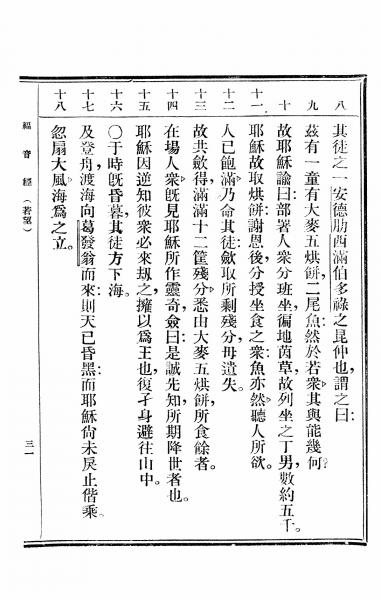 八 其徒之一安德肋西滿伯多祿之昆仲也,謂之曰:
九 茲有一童有大麥五烘餅,二尾魚然於若衆其與能幾何?
十 故耶穌諭曰:部署人衆分班坐,徧地茵草,故列坐之丁男,數約五千。
十一 耶穌故取烘餅謝恩後分授坐食之衆,魚亦然聽人所欲。
十二 人已飽滿乃命其徒斂取所剩殘分毋遺失。
十三 故共斂得滿滿十二筐殘分悉由大麥五烘餅所食餘者。
十四 在場人衆旣見耶穌所作靈奇,僉曰:是誠先知所期降世者也。
十五 耶穌因逆知彼衆必來刼之,擁以爲王也,復孑身避往山中。
十六 〇于時旣昏暮,其徒方下海。
十七 及登舟,渡海向葛發翁而來:則天已昏黑而耶穌尙未戾止偕乘。
十八 忽扇大風,海爲之立。
福音經 (若望) 三一